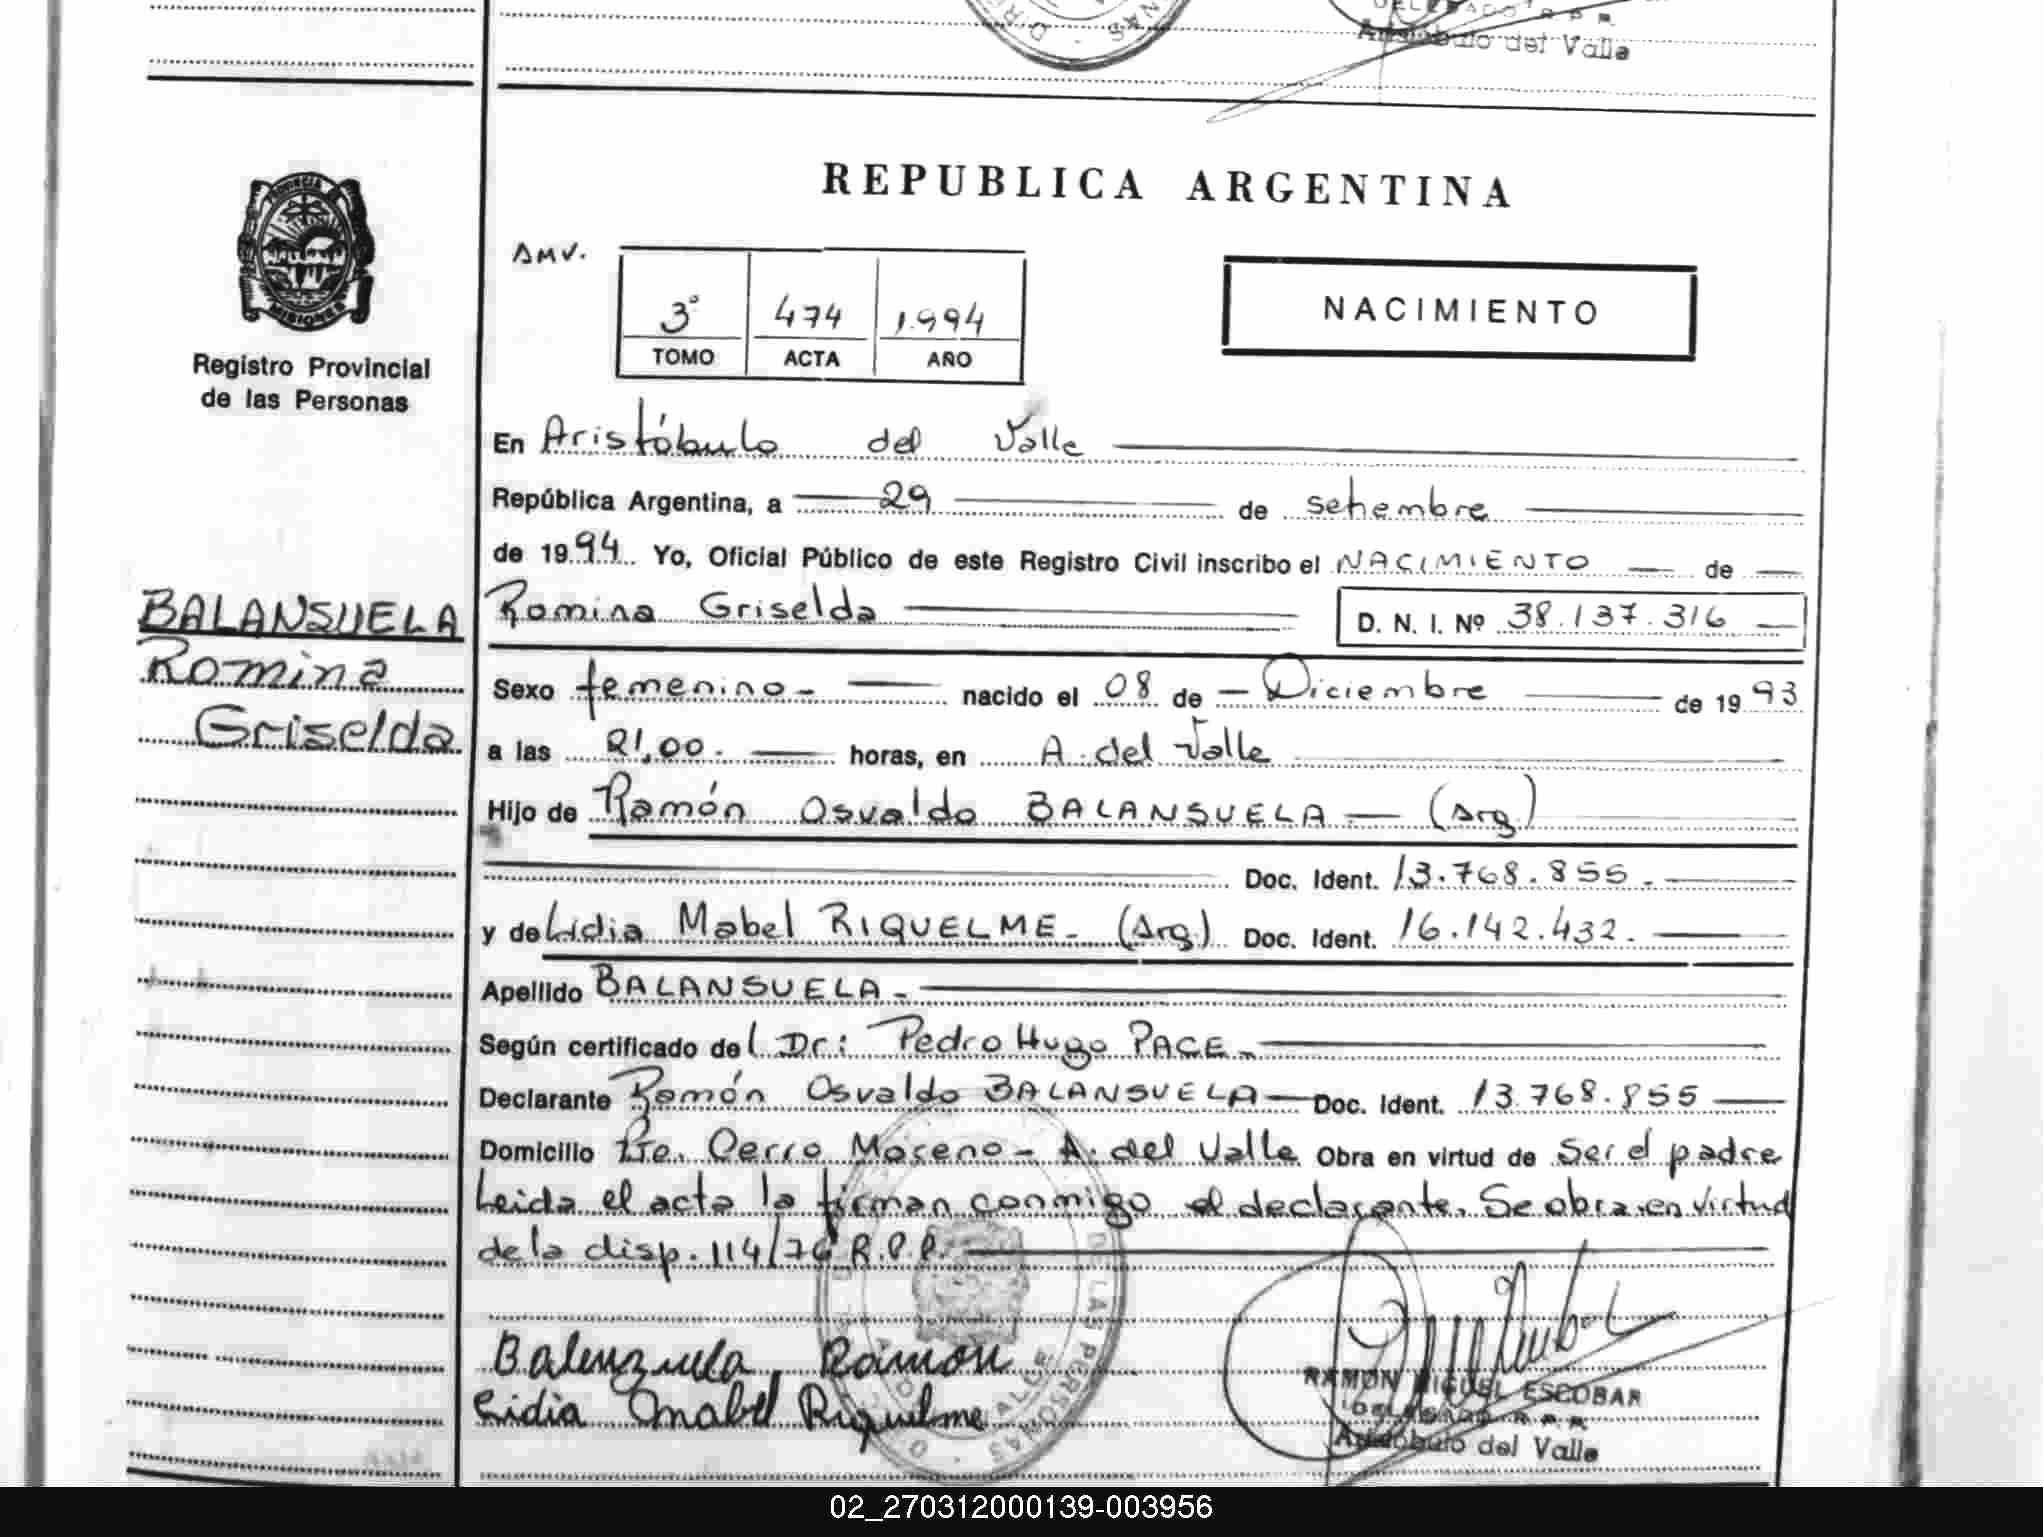 Aristóbulo del Valle
REPUBLICA ARGENTINA
PROVINCIA
MISIONES
Registro Provincial
de las Personas
AMV.
3º 474 1.994
TOMO ACTA AÑO
NACIMIENTO
En Aristóbulo del Valle
República Argentina, a 29 de setiembre
de 1994 Yo, Oficial Público de este Registro Civil inscribo el NACIMIENTO de
BALANSUELA
Romina
Griselda
Romina Griselda D. N. I. Nº 38.137.316
Sexo femenino - nacido el 08 de Diciembre de 1993
a las 21,00. horas, en A. del Valle
Hijo de Ramón Osvaldo BALANSUELA (Arg)
Doc. Ident. 13.768.855.
y de Lidia Mabel RIQUELME - (Arg) Doc. Ident. 16.142.432.
Apellido BALANSUELA -
Según certificado del Dr: Pedro Hugo PACE -
Declarante Ramón Osvaldo BALANSUELA Doc. Ident. 13.768.855
Domicilio Pto. Cerro Moreno - A. del Valle Obra en virtud de Ser el padre
Leida el acta la firman conmigo el declarante. Se obra en virtud
de la disp. 114/76 R.P.P.
Balenzuela Ramon
Lidia Mabel Riquelme
DE LAS PERSONAS
RAMON MIGUEL ESCOBAR
Aristóbulo del Valle
02_270312000139-003956